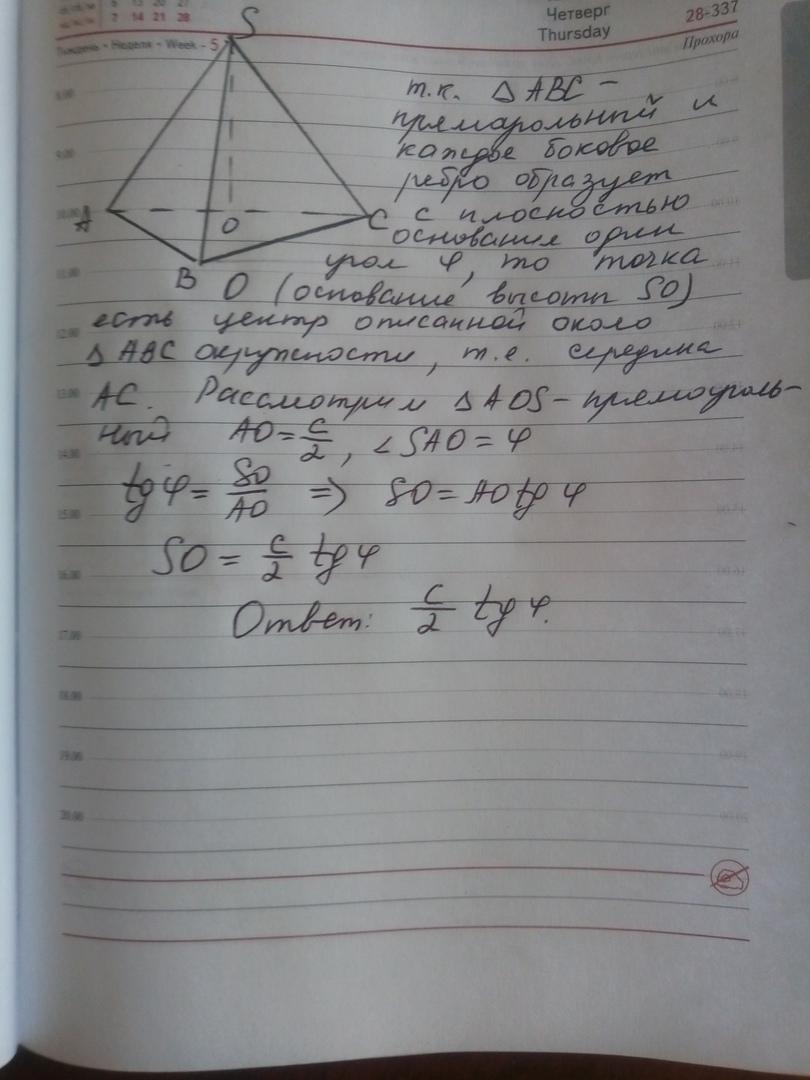 6 13 20 27
7 14 21 28
Четверг
Thursday
28-337
Прохора
Тиждень • Неделя • Week - 5
S
A
B
C
O
т.к. △ ABC –
прямарольный и
каждое боковое
ребро образует
с плоскостью
основания один
угол φ, то точка
O (основание высоты SO)
есть центр описанной около
△ ABC окружности, т.е. середина
AC. Рассмотрим △ AOS – прямоуголь-
ный AO = c/2, ∠ SAO = φ
tg φ = SO/AO => SO = AO tg φ
SO = c/2 tg φ
Ответ: c/2 tg φ.
8.00
9.00
10.00
11.00
12.00
13.00
14.00
15.00
16.00
17.00
18.00
19.00
20.00